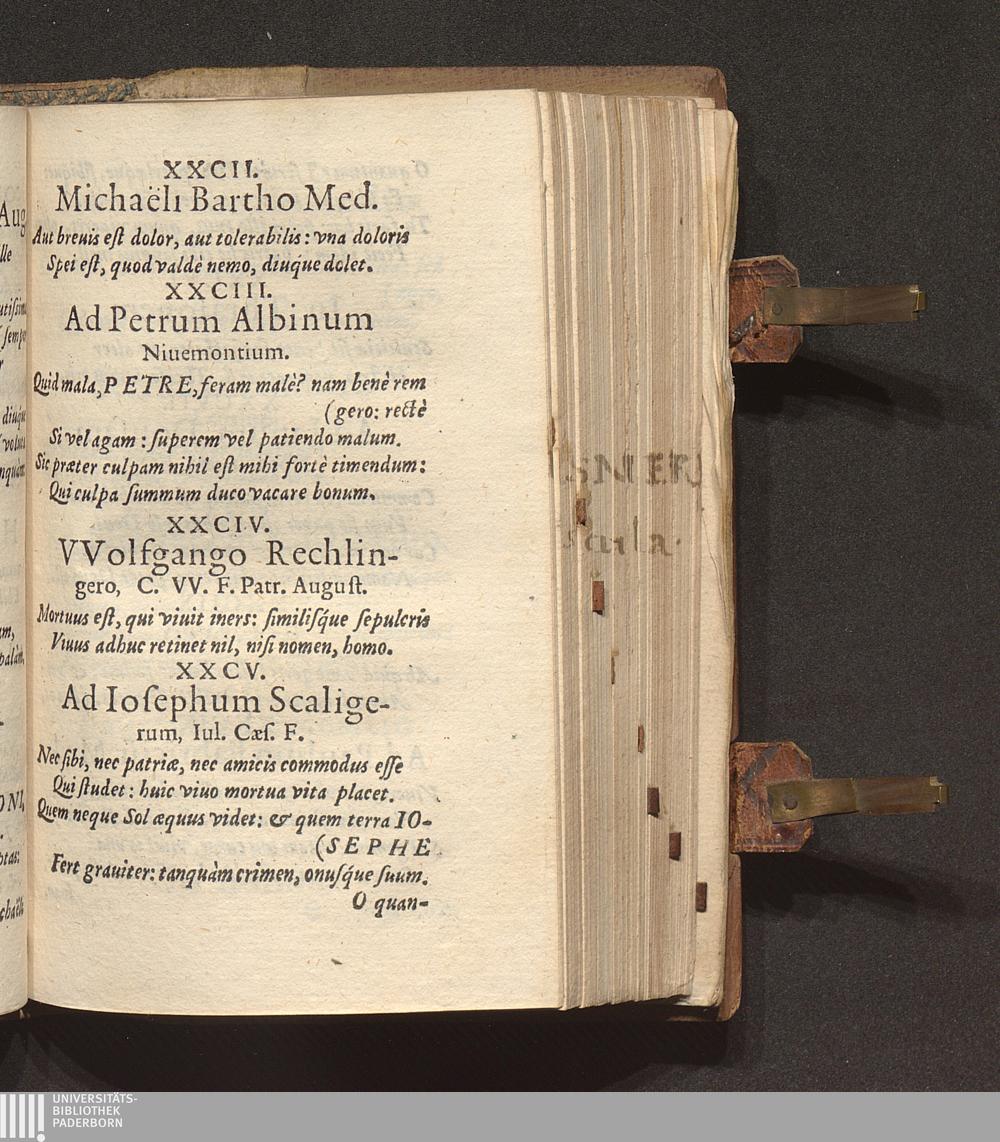 XXCII.
Michaëli Bartho Med.
Aut breuis eſt dolor, aut tolerabilis: vna doloris
Spei eſt, quod valdè nemo, diuq́ue dolet.
XXCIII.
Ad Petrum Albinum
Niuemontium.
Quid mala, PETRE, feram malè? nam benè rem
(gero: rectè
Si vel agam: ſuperem vel patiendo malum.
Sic præter culpam nihil eſt mihi fortè timendum:
Qui culpa ſummum duco vacare bonum.
XXCIV.
VVolfgango Rechlin-
gero, C. VV. F. Patr. Auguſt.
Mortuus eſt, qui viuit iners: ſimilisq́ue ſepulcris
Viuus adhuc retinet nil, niſi nomen, homo.
XXCV.
Ad Ioſephum Scalige-
rum, Iul. Cæſ. F.
Nec ſibi, nec patriæ, nec amicis commodus eſſe
Qui ſtudet: huic viuo mortua vita placet.
Quem neque Sol æquus videt: & quem terra IO-
(SEPHE
Fert grauiter: tanquàm crimen, onuſq́ue ſuum.
O quan-
Aug
lle
ſempe
diuq́ue
nquàm
palàm.
ONI,
ptas:
chaëli
UNIVERSITÄTS-
BIBLIOTHEK
PADERBORN